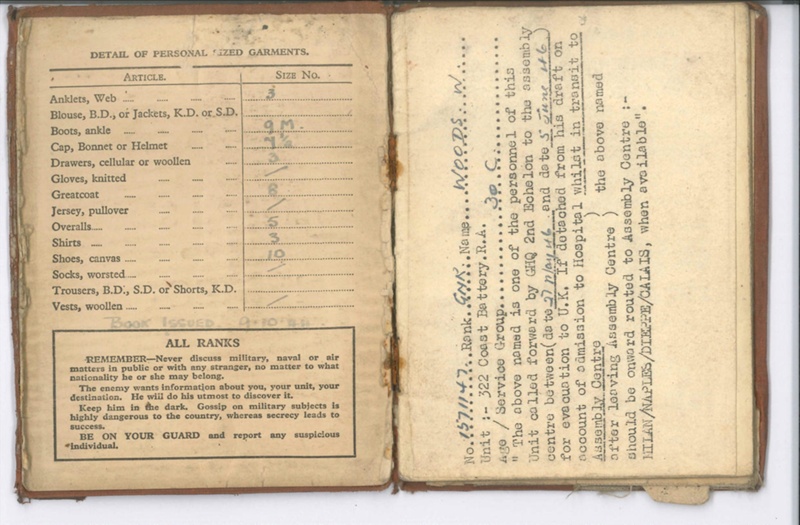 DETAIL OF PERSONAL SIZED GARMENTS.
ARTICLE. SIZE NO.
Anklets, Web .... .... .... 3
Blouse, B.D., or Jackets, K.D. or S.D.
Boots, ankle .... .... .... .... 9 M
Cap, Bonnet or Helmet .... ....
Drawers, cellular or woollen .... 3
Gloves, knitted .... .... .... /
Greatcoat .... .... .... .... 8
Jersey, pullover .... .... .... /
Overalls.... .... .... .... .... 5
Shirts .... .... .... .... .... 3
Shoes, canvas .... .... .... .... 10
Socks, worsted.... .... .... .... /
Trousers, B.D., S.D. or Shorts, K.D.
Vests, woollen .... .... .... .... /
BOOK ISSUED
ALL RANKS
REMEMBER—Never discuss military, naval or air
matters in public or with any stranger, no matter to what
nationality he or she may belong.
The enemy wants information about you, your unit, your
destination. He will do his utmost to discover it.
Keep him in the dark. Gossip on military subjects is
highly dangerous to the country, whereas secrecy leads to
success.
BE ON YOUR GUARD and report any suspicious
individual.
No. 1571147 Rank GNR Name WOODS. W.
Unit :- 322 Coast Battery.R.A.
Age / Service Group 30 C
" The above named is one of the personnel of this
Unit called forward by GHQ 2nd Echelon to the assembly
centre between(date 27 May 46 and date 5 June 46)
for evacuation to U.K. If detached from his draft on
account of admission to Hospital whilst in transit to
Assembly Centre ) the above named
after leaving Assembly Centre )
should be onward routed to Assembly Centre :-
MILAN/NAPLES/DIEPPE/CALAIS, when available".